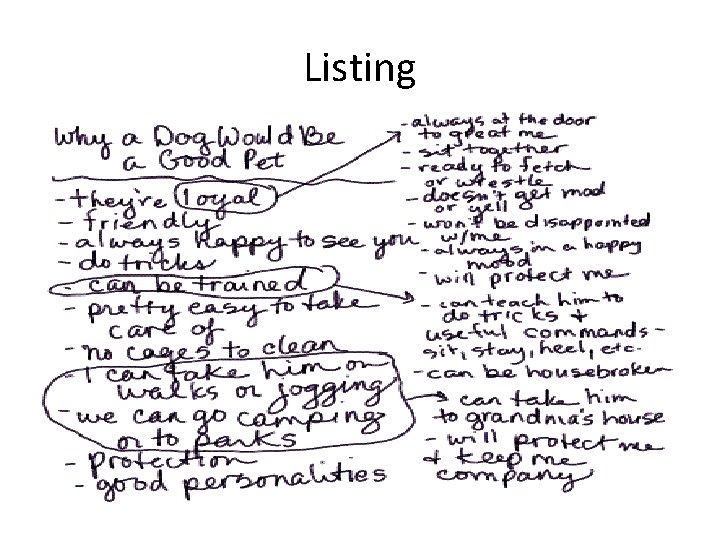 Listing
Why a Dog Would Be
a Good Pet
- they're loyal
- friendly
- always happy to see you
- do tricks
- can be trained
- pretty easy to take
care of
- no cages to clean
- I can take him on
walks or jogging
- we can go camping
or to parks
- Protection
- good personalities
- always at the door
to great me
- sit together
- ready to fetch
or wrestle
- doesn't get mad
or yell
- won't be disappointed
w/me
- always in a happy
mood
- will protect me
- can teach him to
do tricks +
useful commands -
sit, stay, heel, etc.
- can be housebroken
can take him
to grandma's house
- will protect me
+ keep me
company